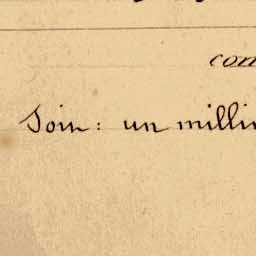 con
Soin: un milli